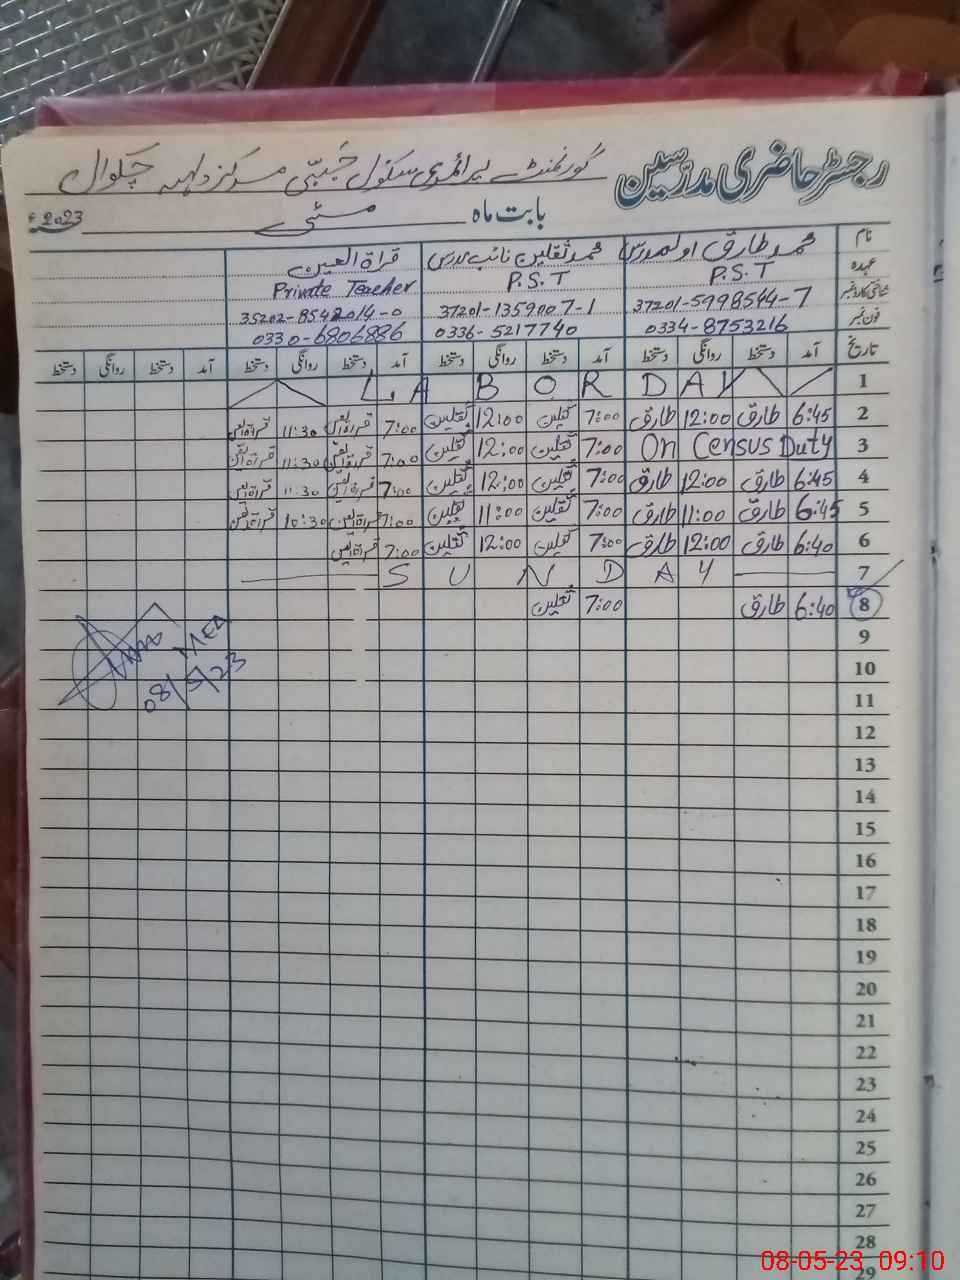 رجسٹر حاضری مدرسین گورنمنٹ پرائمری سکول جَبّی مرکز چکوال
بابت ماہ مئی 2023ء
نام محمد طارق اول مدرس محمد ثقلین نائب مدرس قراۃ العین
عہدہ P.S.T P.S.T Private Teacher
شناختی کارڈ نمبر 37201-5998544-7 37201-1359007-1 35202-8542014-0
فون نمبر 0334-8753216 0336-5217740 0330-6806886
تاریخ آمد دستخط روانگی دستخط آمد دستخط روانگی دستخط آمد دستخط روانگی دستخط آمد دستخط روانگی دستخط
1 LABOR DAY
2 6:45 طارق 12:00 طارق 7:00 ثقلین 12:00 ثقلین 7:00 قراۃ العین 11:30 قراۃ العین
3 On Census Duty 7:00 ثقلین 12:00 ثقلین 7:00 قراۃ العین 11:30 قراۃ العین
4 6:45 طارق 12:00 طارق 7:00 ثقلین 12:00 ثقلین 7:00 قراۃ العین 11:30 قراۃ العین
5 6:45 طارق 11:00 طارق 7:00 ثقلین 11:00 ثقلین 7:00 قراۃ العین 10:30 قراۃ العین
6 6:40 طارق 12:00 طارق 7:00 ثقلین 12:00 ثقلین 7:00 قراۃ العین
7 SUNDAY
8 6:40 طارق 7:00 ثقلین
MEA
08/5/23
9
10
11
12
13
14
15
16
17
18
19
20
21
22
23
24
25
26
27
28
29
08-05-23, 09:10